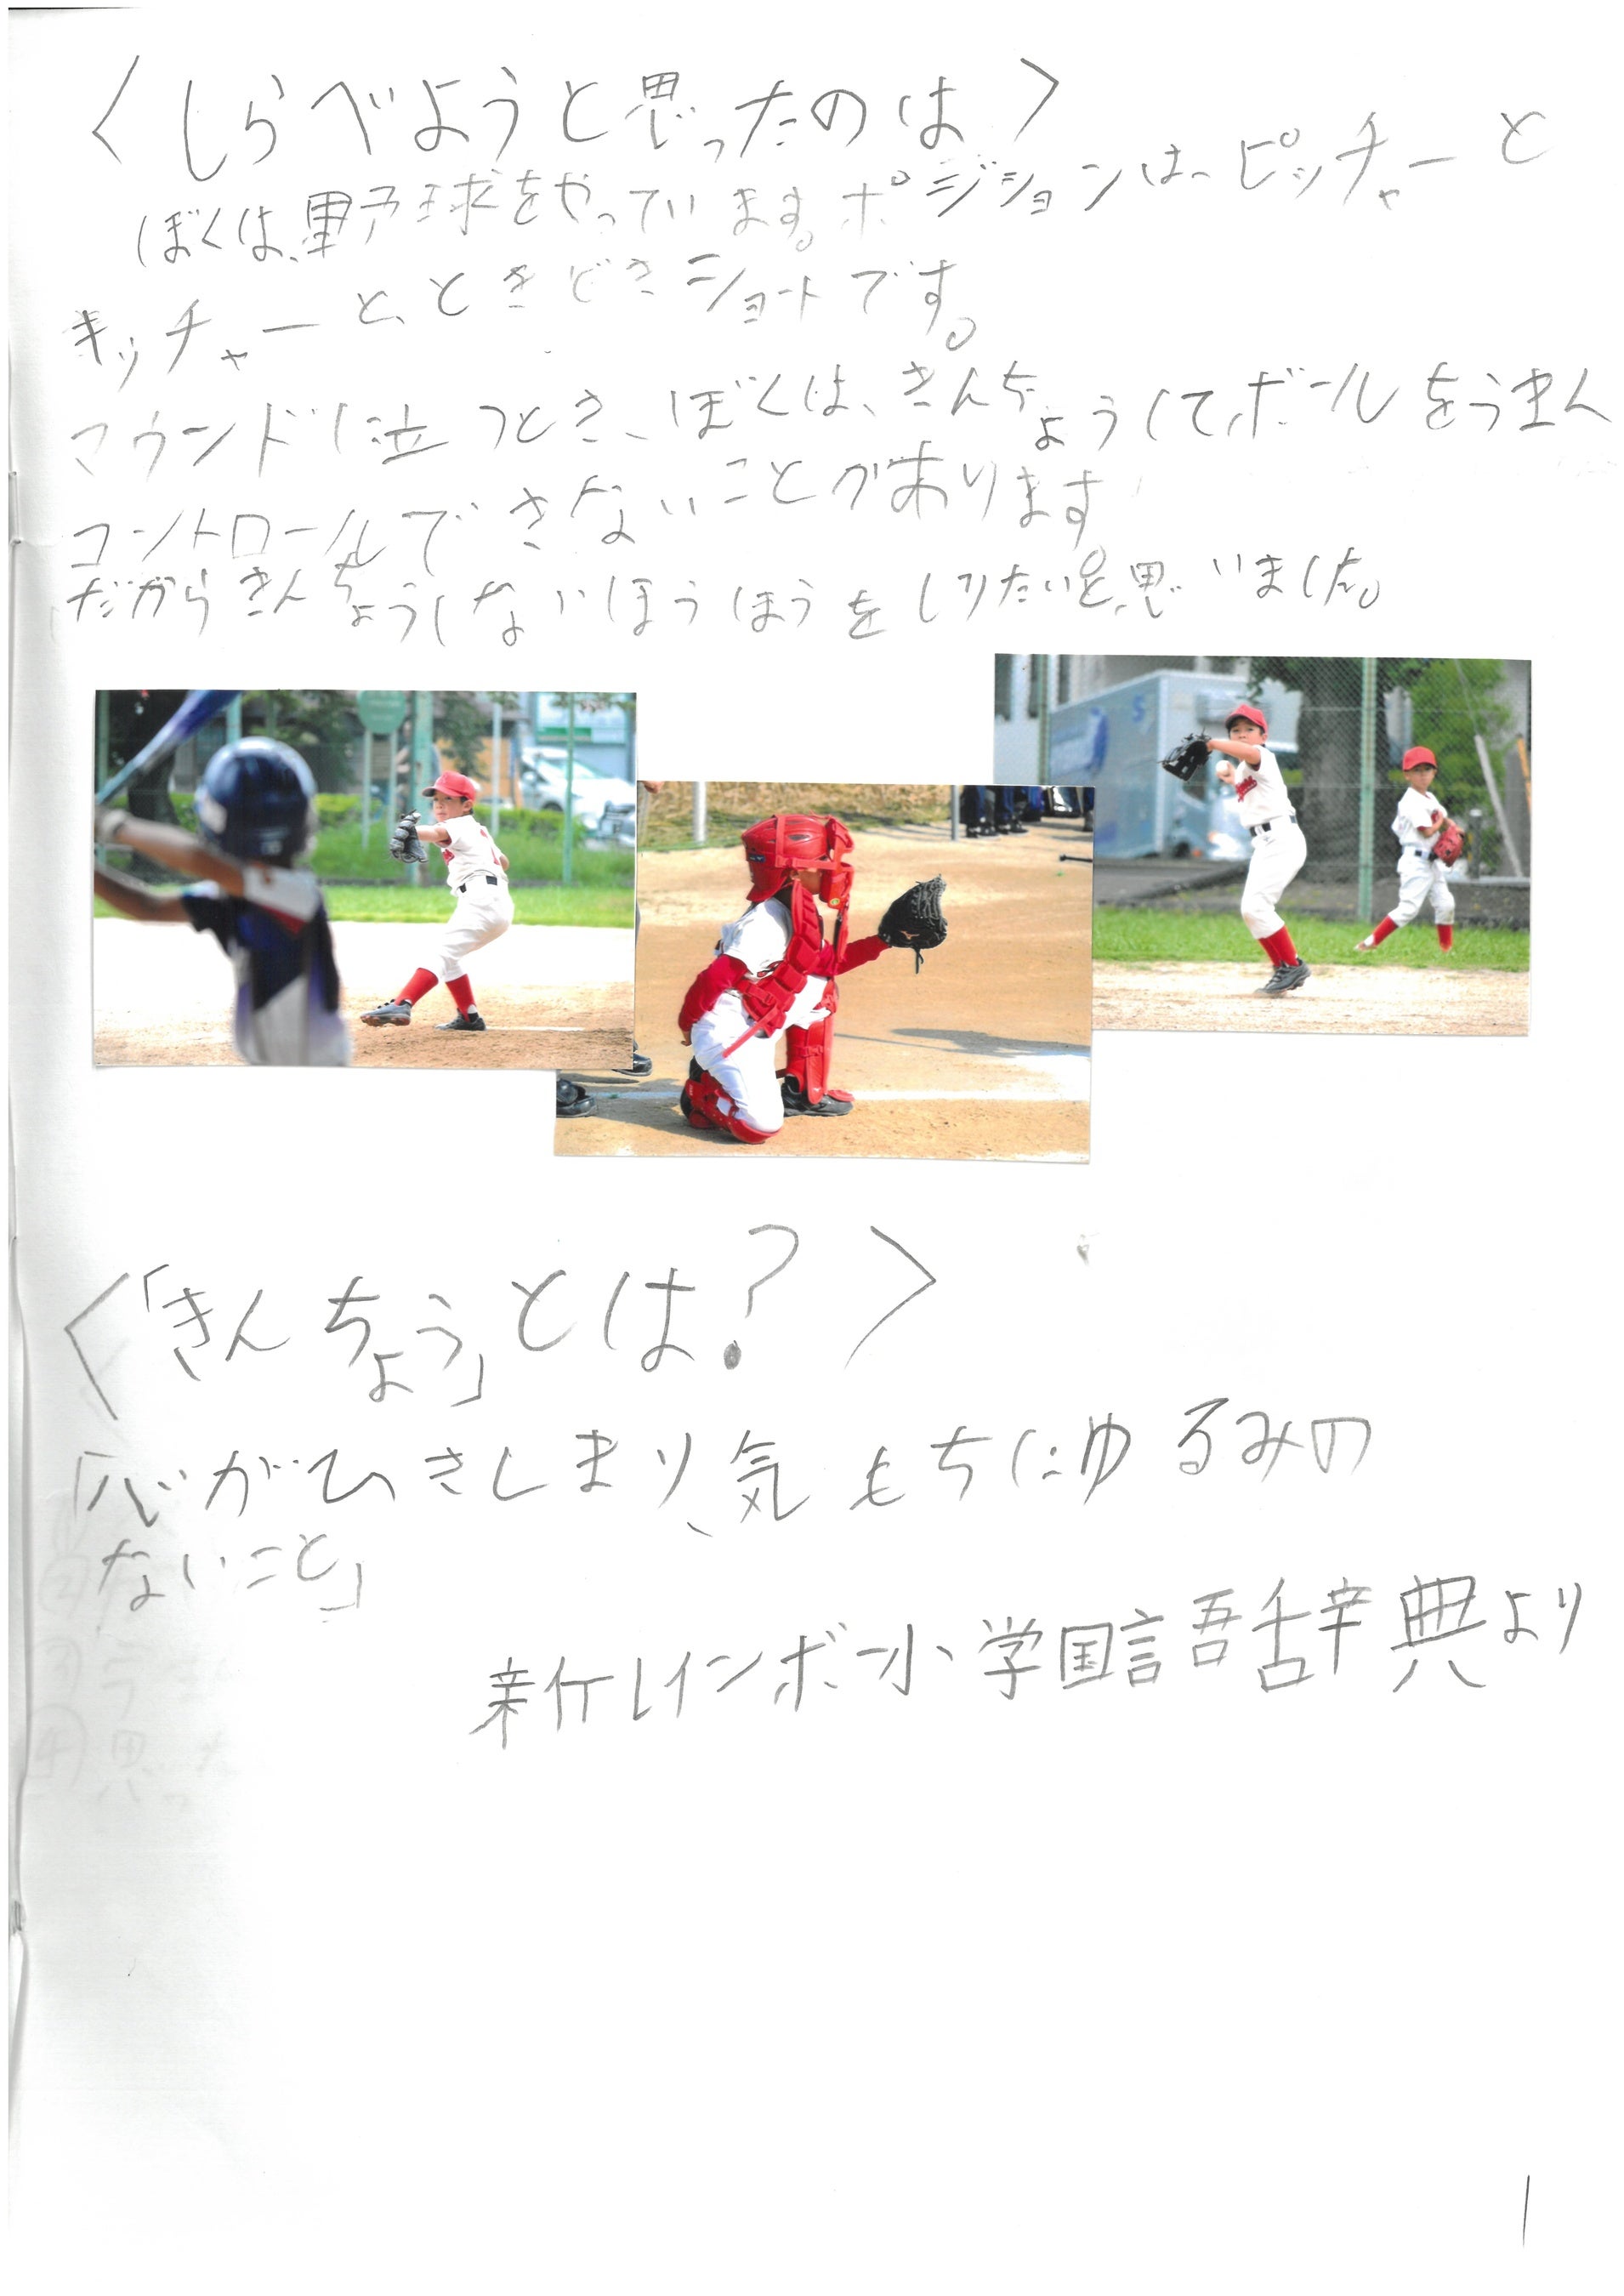 〈しらべようと思ったのは〉
ぼくは、野球をやっています。ポジションは、ピッチャーと
キッチャーと、ときどきショートです。
マウンドに立つとき、ぼくは、きんちょうしてボールをうまく
コントロールできないことが有ります
だからきんちょうしないほうほうをしりたいと思いました。
〈「きんちょう」とは?〉
「心がひきしまり、気もちにゆるみの
ないこと」
新レインボー小学国語辞典より
1